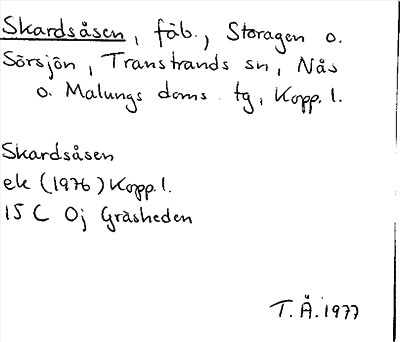 Skardsåsen, fäb., Storagen o.
Sörsjön, Transtrands sn, Nås
o. Malungs doms. tg, Kopp. l.
Skardsåsen
ek (1976) Kopp. l.
15 C Oj Gräsheden
T. Å. 1977